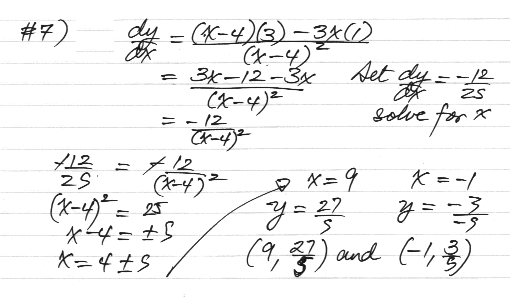 #7) dy/dx = (x-4)(3) - 3x(1) / (x-4)²
= 3x-12-3x / (x-4)²
Set dy/dx = -12/25
= -12/(x-4)²
solve for x
-12/25 = -12/(x-4)²
(x-4)² = 25
x-4 = ±5
x = 4 ± 5
x = 9
x = -1
y = 27/5
y = -3/-5
(9, 27/5) and (-1, 3/5)